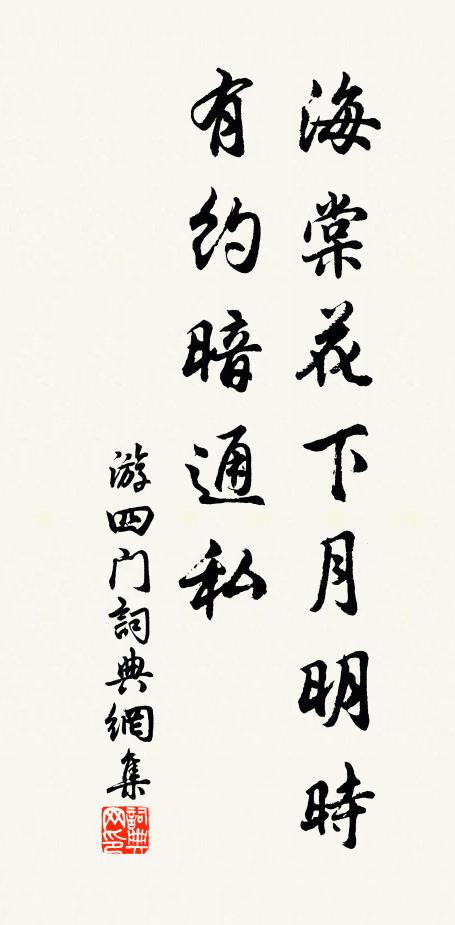 海棠花下月明時
有约暗通私
游四门詞典網集
詞典网印